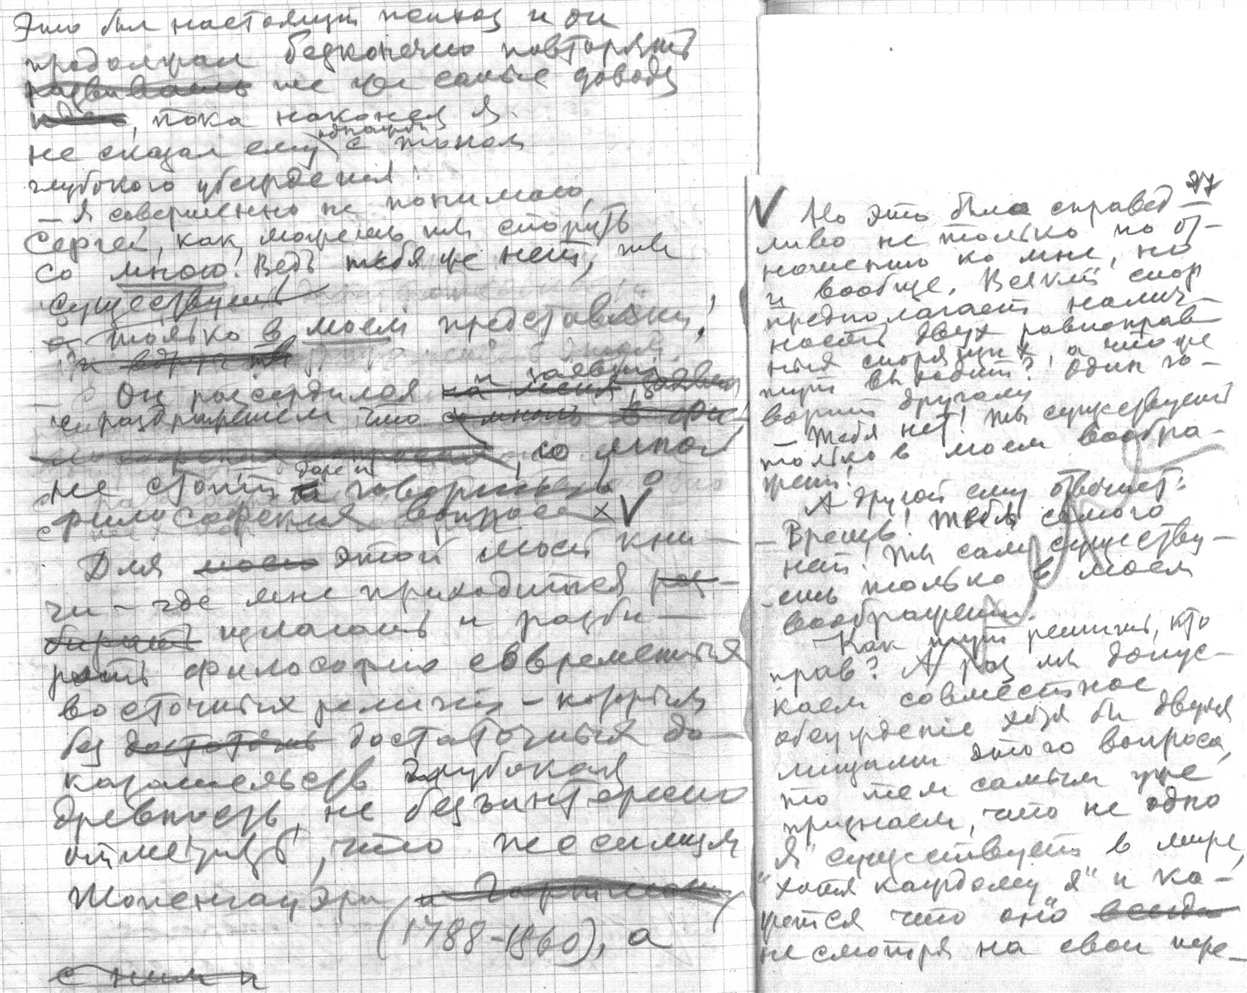 Это был настоящий психоз и он
продолжал безконечно повторять
развивать те же самые доводы
, пока наконец я
не сказал ему однажды с тоном
глубокого убеждения:
— Я совершенно не понимаю,
Сергей, как можешь ты спорить
со мною! Ведь тебя же нет, ты
существуешь
только в моем представлении!
и вдруг
Он рассердился и заявил
с раздражением что
, со мной
не стоит даже и говорить о
философских вопросах V
Для моей этой моей кни-
ги — где мне приходится раз-
бирать излагать и разби-
рать философию современных
восточных религий
без достаточных до-
казательств глубокая
древность, не безъинтересно
отметить, что пессимизм
Шопенгауэра
(1788-1860), а
с ним и
27
V Но это было справед-
ливо не только по от-
ношению ко мне, но
и вообще. Всякий спор
предполагает налич-
ность двух равноправ-
ных спорящих, а что же
тут выходит? Один го-
ворит другому
— Тебя нет! Ты существуешь
только в моем вообра-
жении.
А другой ему отвечает:
— Врешь! Тебя самого
нет. Ты сам существу-
ешь только в моем
воображении.
Как тут решить, кто
прав? А раз мы допус-
каем совместное
обсуждение хотя бы двумя
лицами этого вопроса,
то тем самым уже
признаем, что не одно
"Я" существует в мире,
хотя каждому "я" и ка-
жется что оно всегда
несмотря на свои пере-